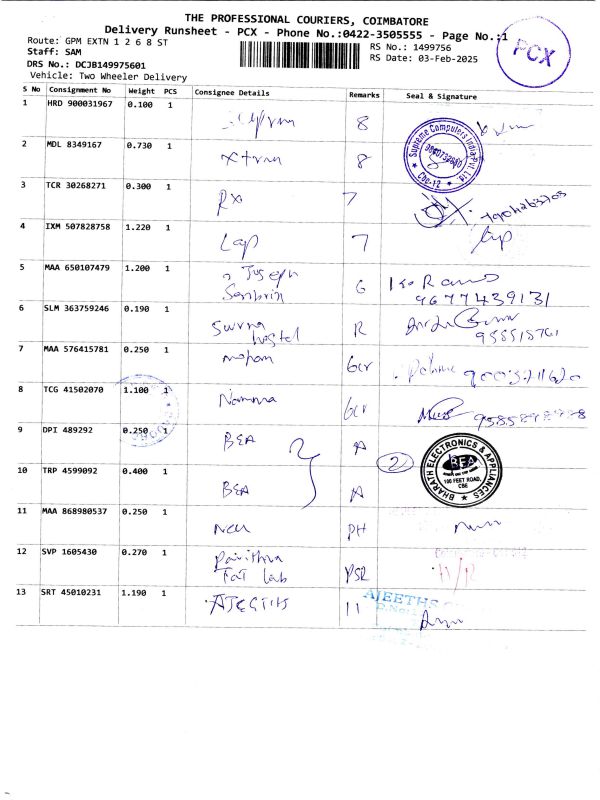 THE PROFESSIONAL COURIERS, COIMBATORE
Delivery Runsheet - PCX - Phone No.:0422-3505555 - Page No.:1
Route: GPM EXTN 1 2 6 8 ST
RS No.: 1499756
Staff: SAM
RS Date: 03-Feb-2025
DRS No.: DCJB149975601
Vehicle: Two Wheeler Delivery
PCX
S No Consignment No Weight PCS Consignee Details Remarks Seal & Signature
1 HRD 900031967 0.100 1 8
2 MDL 8349167 0.730 1 8
Supreme Computers India Pvt. Ltd. Cbe-12
3 TCR 30268271 0.300 1 RX 7
4 IXM 507828758 1.220 1 Lap 7
5 MAA 650107479 1.200 1 Joseph G
9677439131
6 SLM 363759246 0.190 1 hostel R
7 MAA 576415781 0.250 1 mohan Gcr
8 TCG 41502070 1.100 1 Namma Gcr
9 DPI 489292 0.250 1 BEA A 2
BHARATH ELECTRONICS & APPLIANCES
BEA
100 FEET ROAD,
CBE
10 TRP 4599092 0.400 1 BEA A
11 MAA 868980537 1 0.250 PH
12 SVP 1605430 0.270 1 Pavithra
Lab PSR
13 SRT 45010231 1.190 1 11
AJEETHS
D.No: